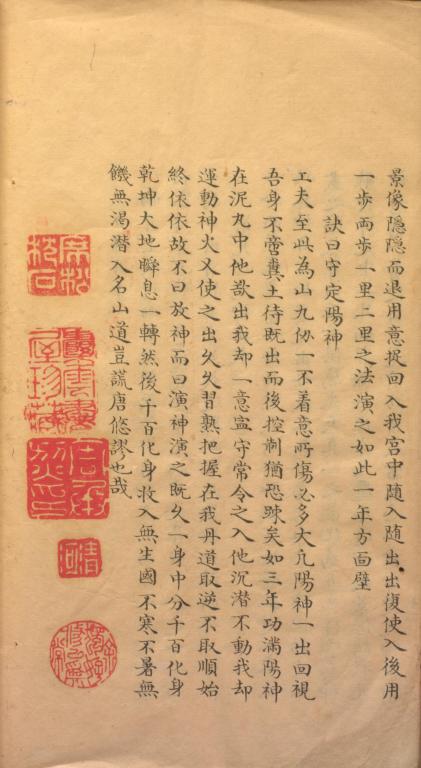 景像隱隱而退用意捉回入我宮中随入随出出復使入後用
一步兩步一里二里之法演之如此一年方面壁
訣曰守定陽神
工夫至此為山九仞一不着意所傷必多大凡陽神一出回視
吾身不啻糞土待既出而後控制猶恐踈矣如三年功滿陽神
在泥丸中他欲出我却一意寍守常令之入他沉潜不動我却
運動神火又使之出久久習熟把握在我丹道取逆不取順始
終依依故不曰放神而曰演神演之既久一身中分千百化身
乾坤大地瞬息一轉然後千百化身收入無生國不寒不暑無
饑無渴潜入名山道豈謊唐悠謬也哉
清河